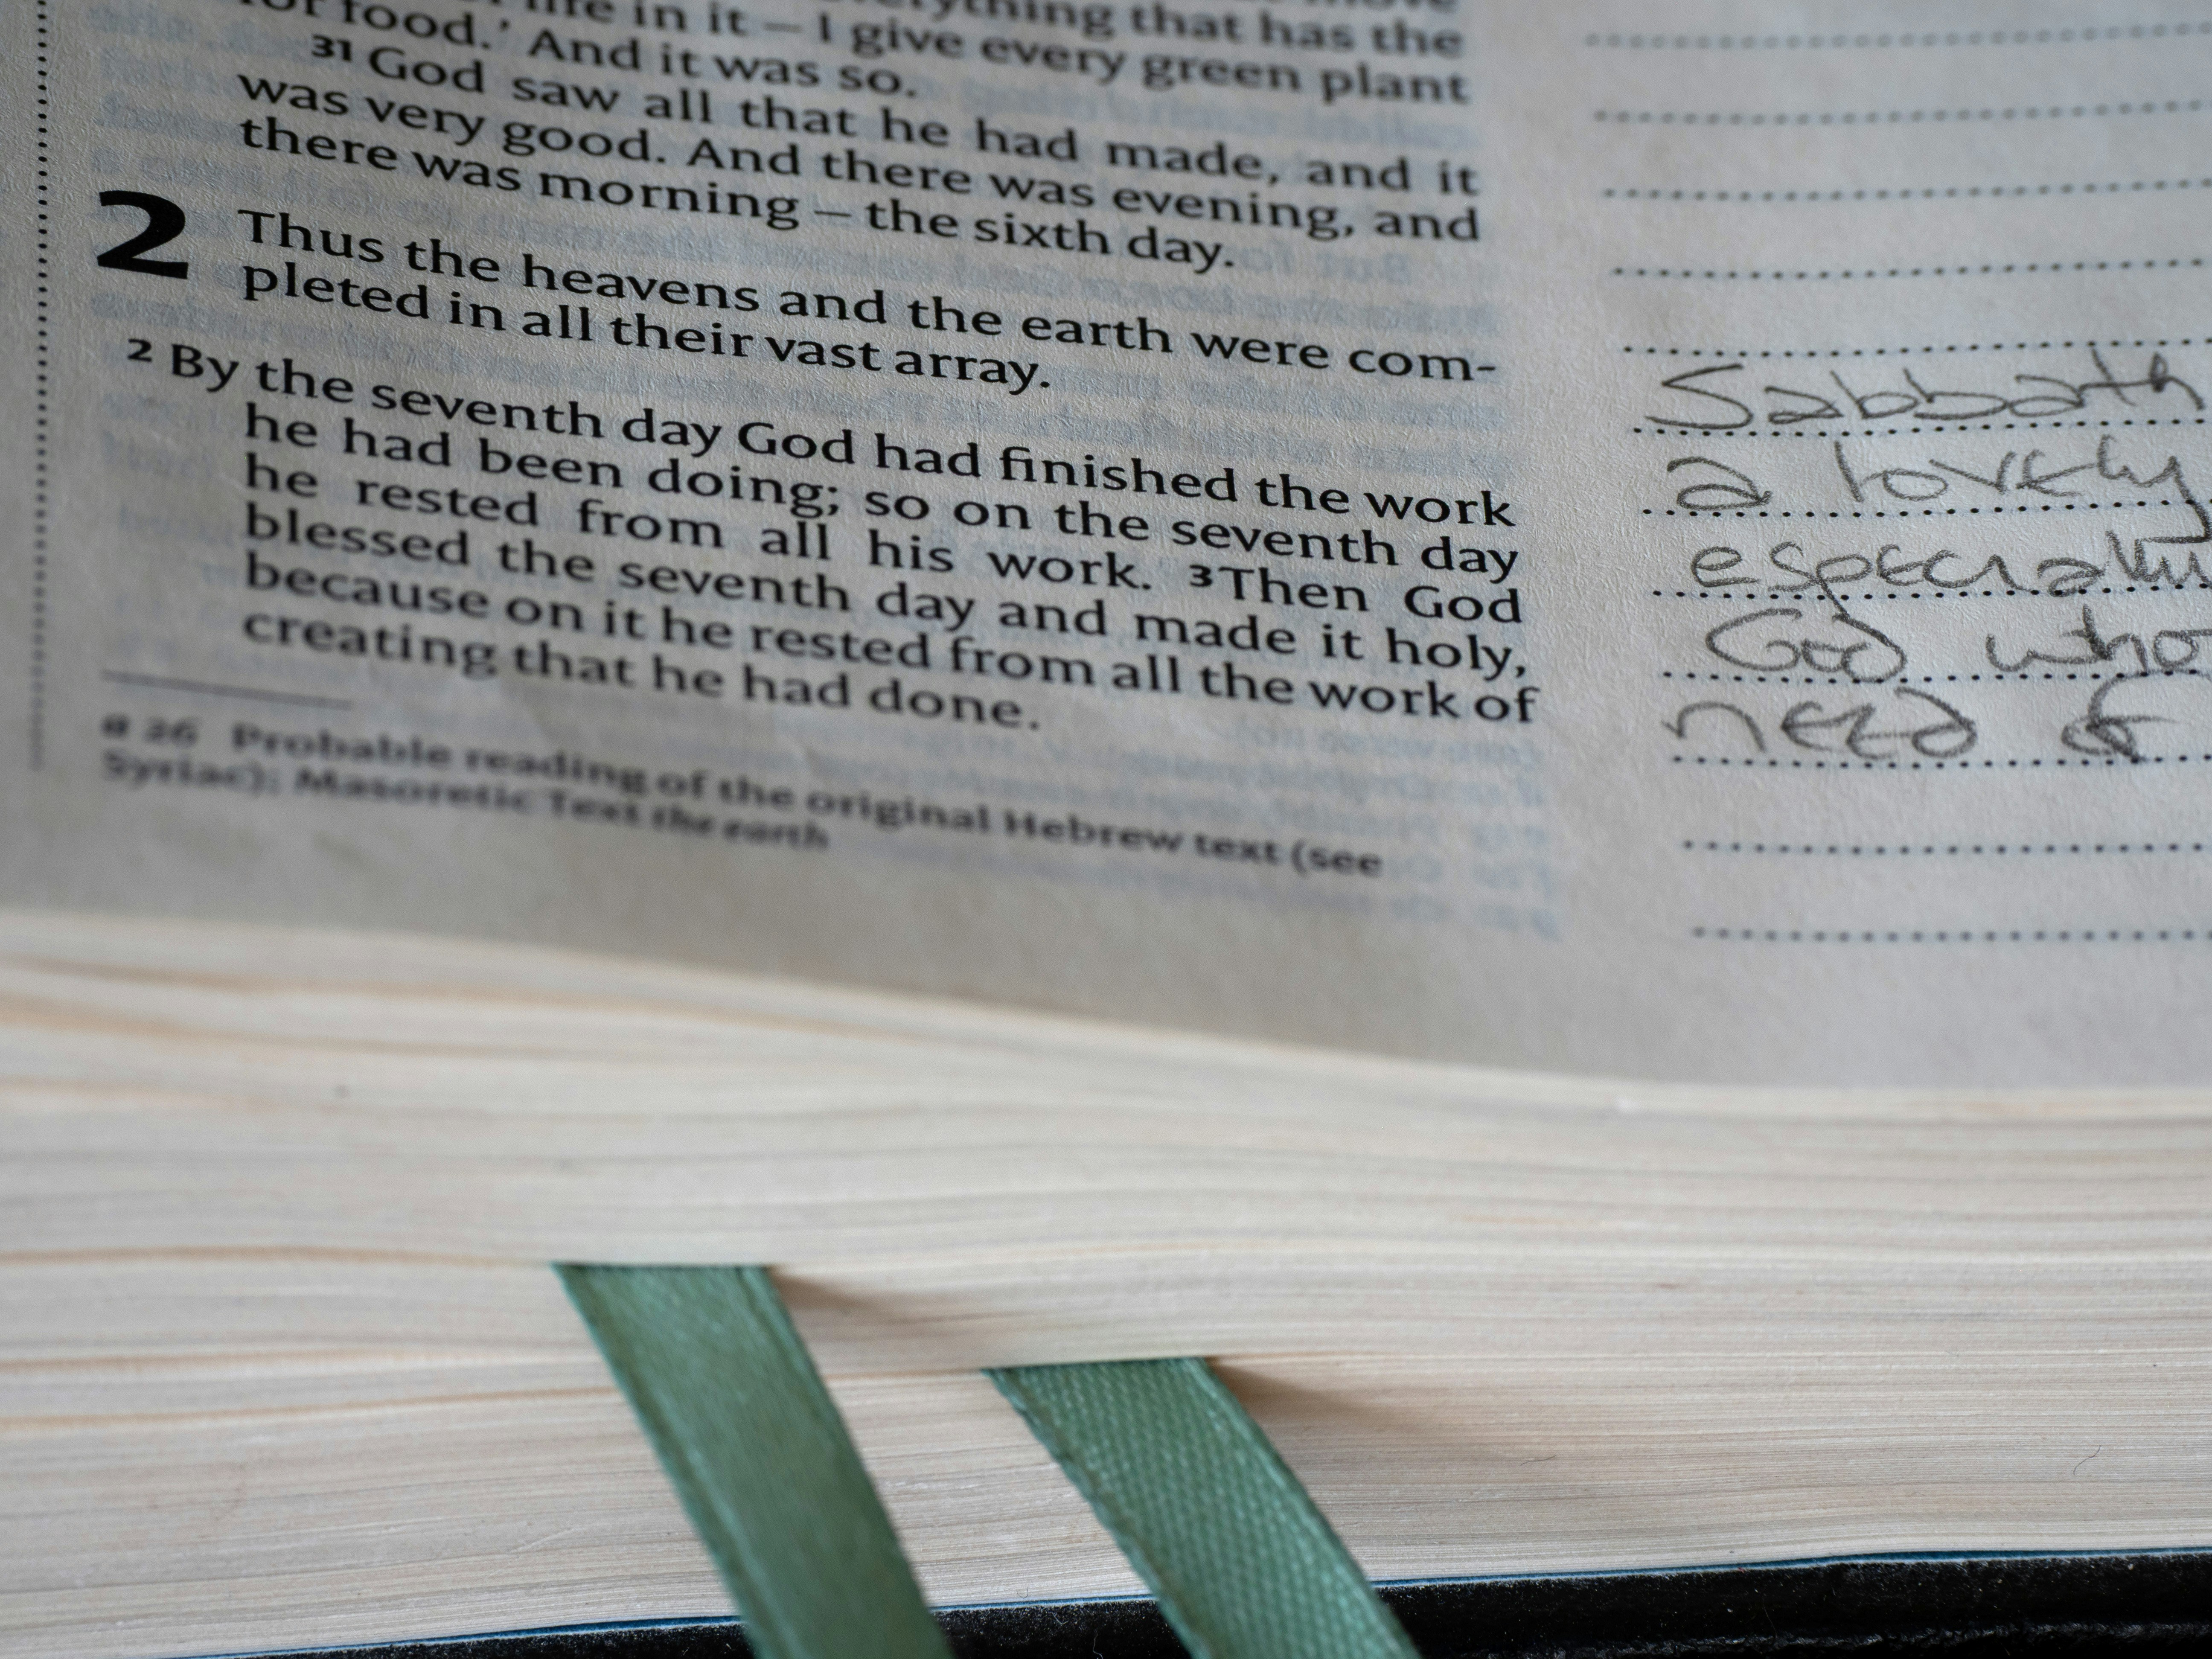 life in it – I give every green plant
for food.’ And it was so.
31 God saw all that he had made, and it
was very good. And there was evening, and
there was morning – the sixth day.
2 Thus the heavens and the earth were com-
pleted in all their vast array.
2 By the seventh day God had finished the work
he had been doing; so on the seventh day
he rested from all his work. 3 Then God
blessed the seventh day and made it holy,
because on it he rested from all the work of
creating that he had done.
a 26 Probable reading of the original Hebrew text (see
Syriac); Masoretic Text the earth
Sabbath
a lovely
especially
God who
need